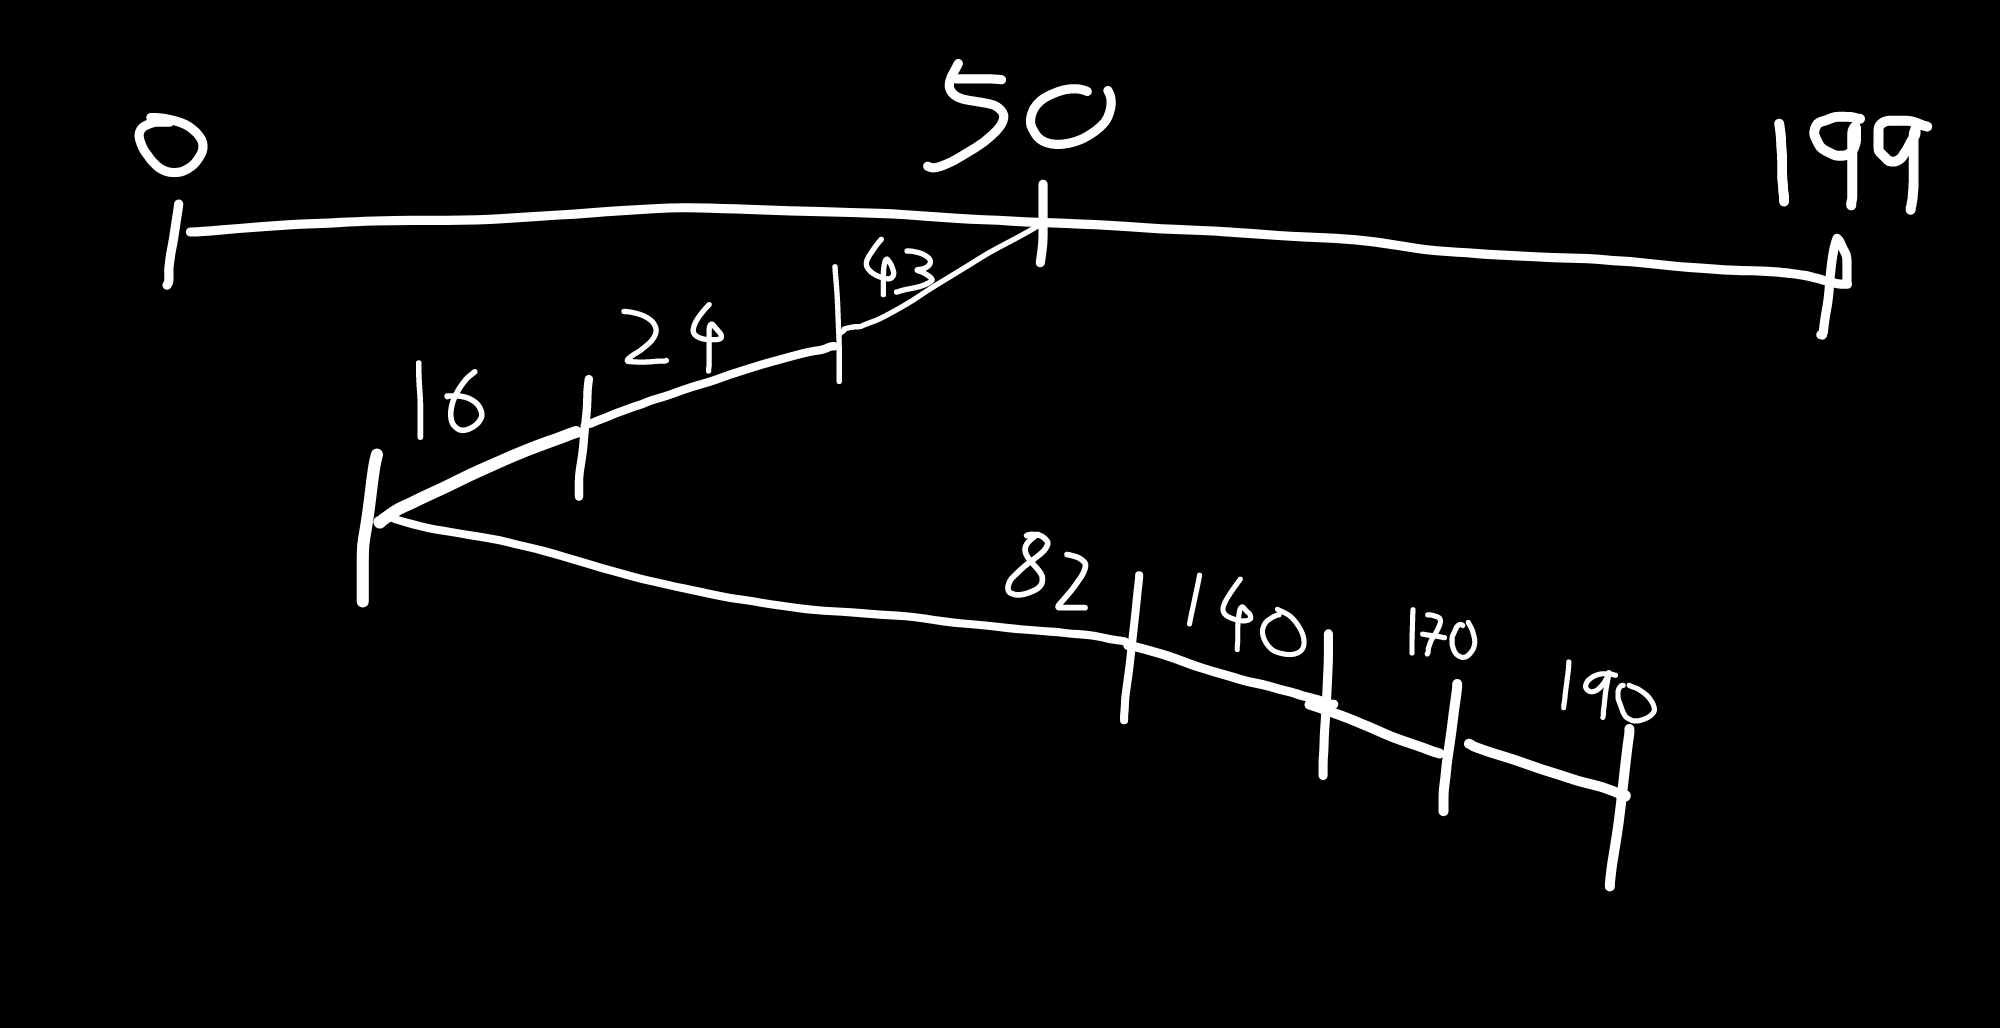 0 50 199
16 24 43
82 140 170 190